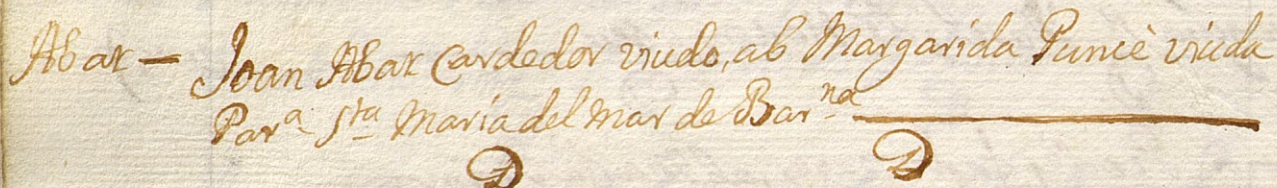 Abat - Joan Abat Cardedor viudo, ab Margarida Puncè viuda
Par.ª S.ta Maria del Mar de Bar.na